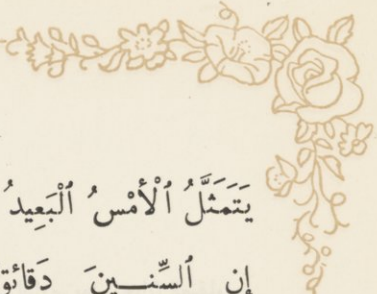 يَتَمَثَّلُ ٱلْأَمْسُ ٱلْبَعِيدُ
إن ٱلسِّنــــينَ دَقائق